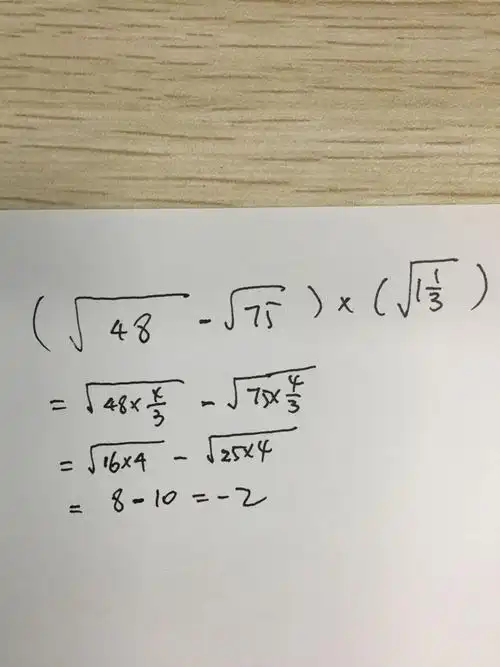 (√48 - √75) × (√1 1/3)
= √48×4/3 - √75×4/3
= √16×4 - √25×4
= 8 - 10 = -2